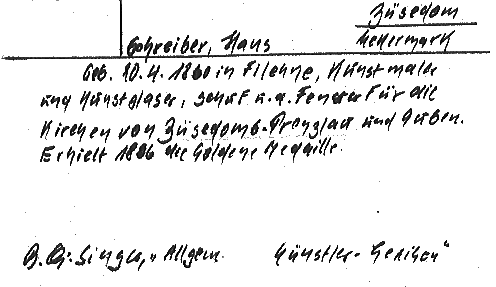 Züsedom
Schreiber, Hans Uckermark
Geb. 10.4.1860 in Filehne, Kunstmaler
und Kunstglaser, schuf u.a. Fenster für die
Kirchen von Züsedom b. Prenzlau und Guben.
Erhielt 1886 die Goldene Medaille.
Singer, „Allgem. Künstler-Lexikon"